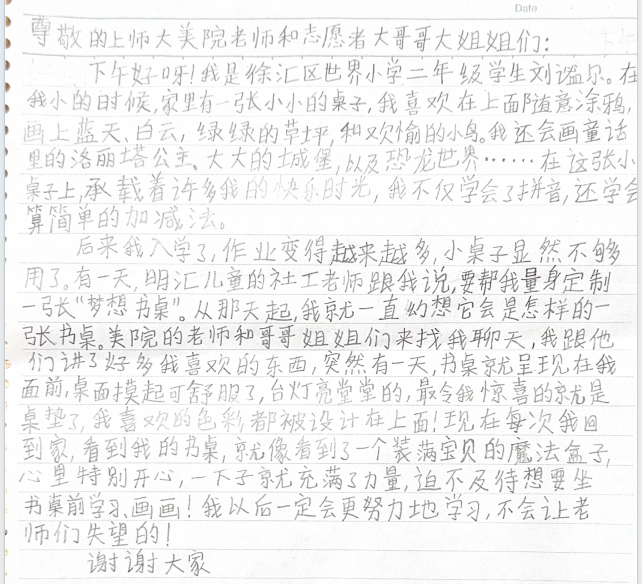 Date
尊敬的上师大美院老师和志愿者大哥哥大姐姐们：
下午好呀！我是徐汇区世界小学二年级学生刘谥尔。在
我小的时候，家里有一张小小的桌子，我喜欢在上面随意涂鸦，
画上蓝天、白云，绿绿的草坪，和欢愉的小鸟。我还会画童话
里的洛丽塔公主、大大的城堡，以及恐龙世界……在这张小
桌子上，承载着许多我的快乐时光，我不仅学会了拼音，还学会
算简单的加减法。
后来我入学了，作业变得越来越多，小桌子显然不够
用了。有一天，明汇儿童的社工老师跟我说，要帮我量身定制
一张“梦想书桌”。从那天起，我就一直幻想它会是怎样的一
张书桌。美院的老师和哥哥姐姐们来找我聊天，我跟他
们讲了好多我喜欢的东西，突然有一天，书桌就呈现在我
面前，桌面摸起可舒服了，台灯亮堂堂的，最令我惊喜的就是
桌垫了，我喜欢的色彩都被设计在上面！现在每次我回
到家，看到我的书桌，就像看到了一个装满宝贝的魔法盒子，
心里特别开心，一下子就充满了力量，迫不及待想要坐
书桌前学习、画画！我以后一定会更努力地学习，不会让老
师们失望的！
谢谢大家